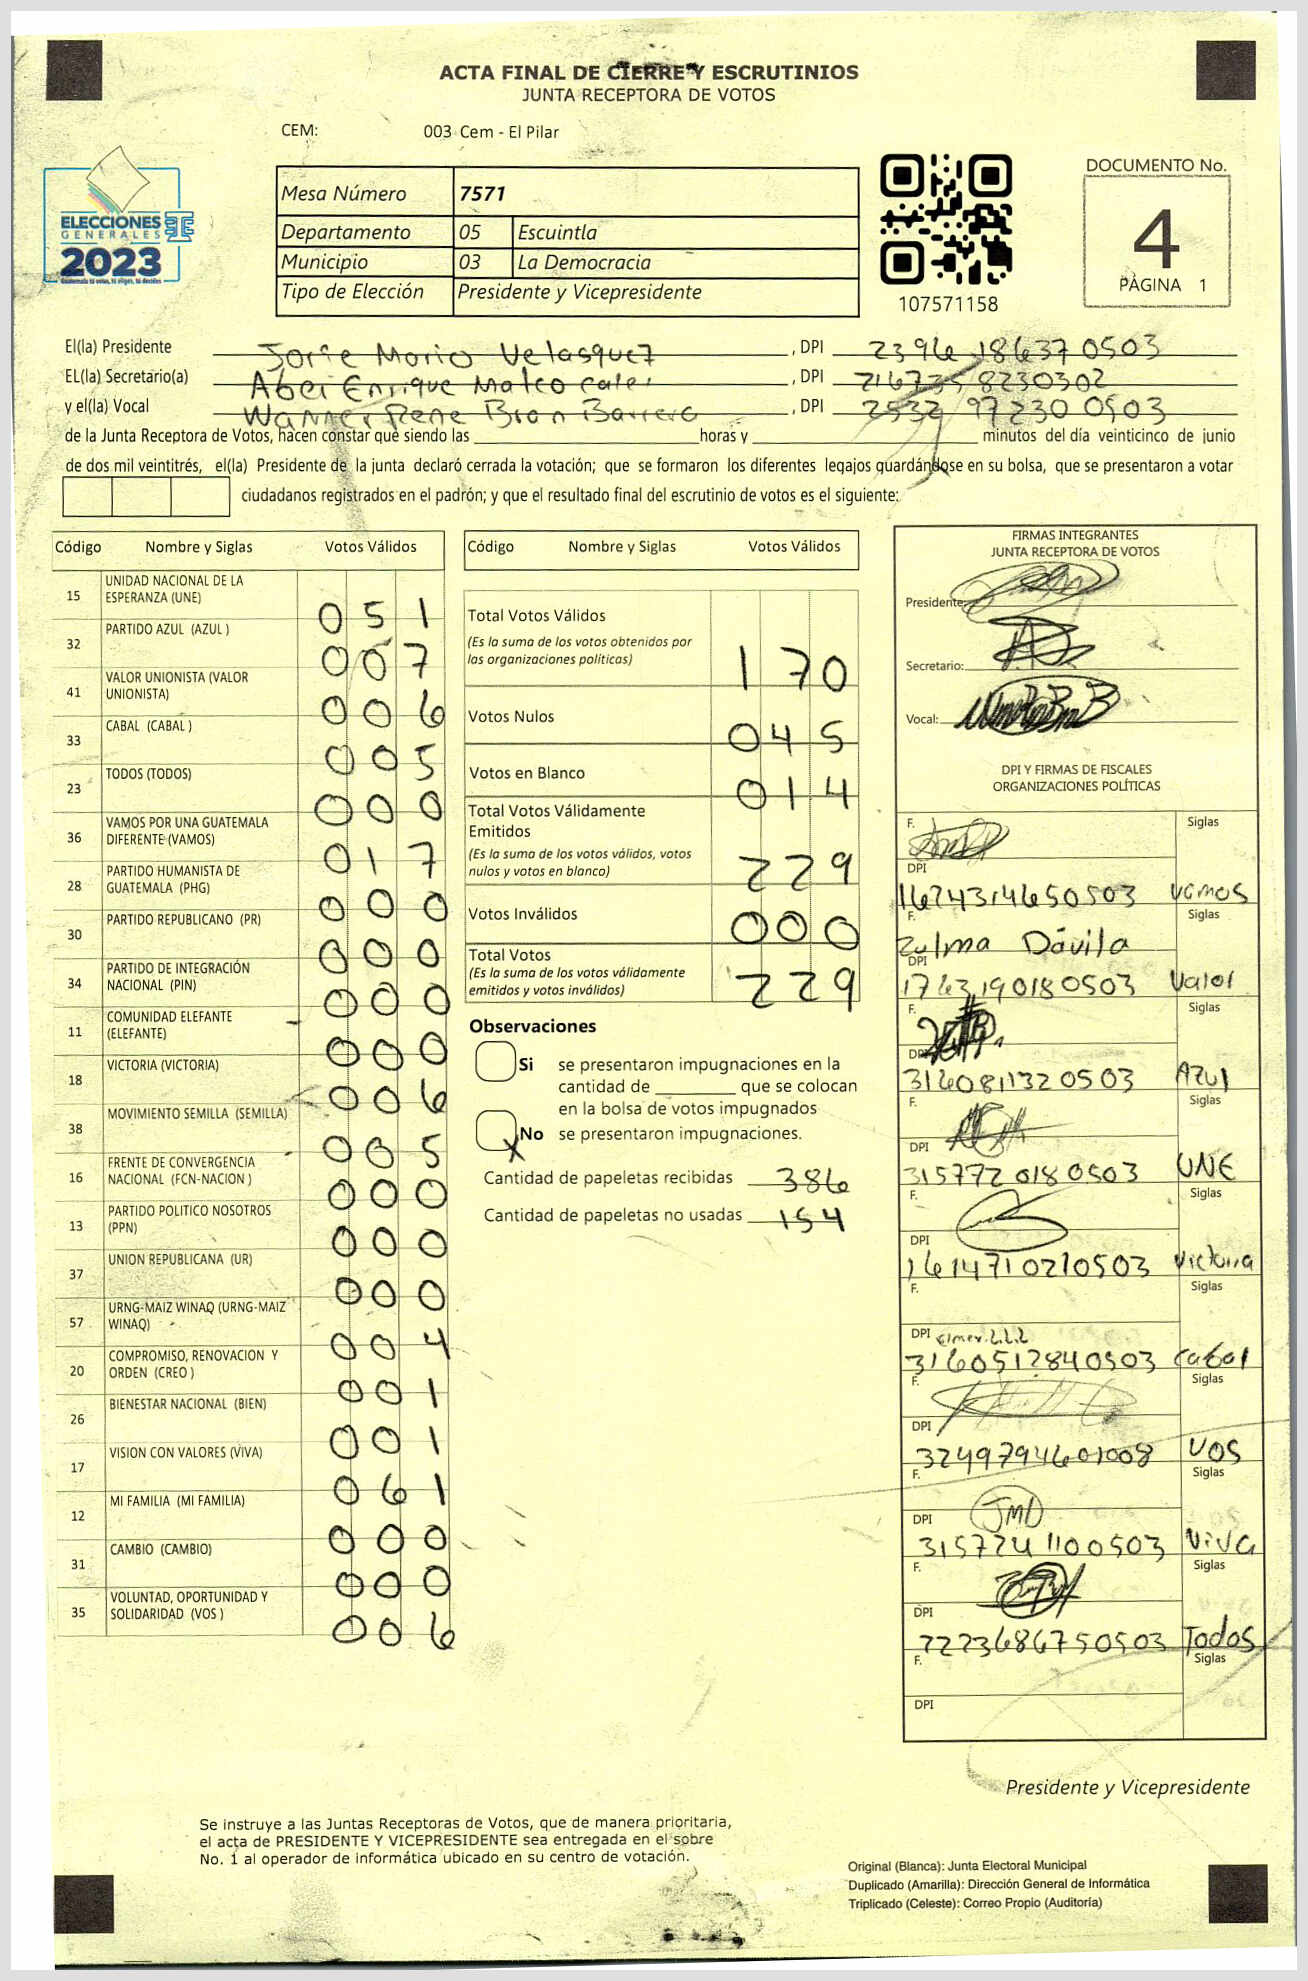 ACTA FINAL DE CIERRE Y ESCRUTINIOS
JUNTA RECEPTORA DE VOTOS
CEM: 003 Cem - El Pilar
ELECCIONES
GENERALES
2023
Mesa Número 7571
Departamento 05 Escuintla
Municipio 03 La Democracia
Tipo de Elección Presidente y Vicepresidente
107571158
DOCUMENTO No.
4
PÁGINA 1
El(la) Presidente Jorge Mario Velasquez, DPI 2396 18637 0503
EL(la) Secretario(a) Abei Enrique Mateo, DPI 216735 8230302
y el(la) Vocal Wanner Rene Bron Barrera, DPI 2532 97230 0503
de la Junta Receptora de Votos, hacen constar que siendo las horas y minutos del día veinticinco de junio
de dos mil veintitrés, el(la) Presidente de la junta declaró cerrada la votación; que se formaron los diferentes legajos guardándose en su bolsa, que se presentaron a votar
ciudadanos registrados en el padrón; y que el resultado final del escrutinio de votos es el siguiente:
Código Nombre y Siglas Votos Válidos
15 UNIDAD NACIONAL DE LA ESPERANZA (UNE) 051
32 PARTIDO AZUL (AZUL ) 007
41 VALOR UNIONISTA (VALOR UNIONISTA) 006
33 CABAL (CABAL ) 005
23 TODOS (TODOS) 000
36 VAMOS POR UNA GUATEMALA DIFERENTE (VAMOS) 017
28 PARTIDO HUMANISTA DE GUATEMALA (PHG) 000
30 PARTIDO REPUBLICANO (PR) 000
34 PARTIDO DE INTEGRACIÓN NACIONAL (PIN) 000
11 COMUNIDAD ELEFANTE (ELEFANTE) 000
18 VICTORIA (VICTORIA) 006
38 MOVIMIENTO SEMILLA (SEMILLA) 005
16 FRENTE DE CONVERGENCIA NACIONAL (FCN-NACION ) 000
13 PARTIDO POLITICO NOSOTROS (PPN) 000
37 UNION REPUBLICANA (UR) 000
57 URNG-MAIZ WINAQ (URNG-MAIZ WINAQ) 004
20 COMPROMISO, RENOVACION Y ORDEN (CREO ) 001
26 BIENESTAR NACIONAL (BIEN) 001
17 VISION CON VALORES (VIVA) 061
12 MI FAMILIA (MI FAMILIA) 000
31 CAMBIO (CAMBIO) 000
35 VOLUNTAD, OPORTUNIDAD Y SOLIDARIDAD (VOS ) 006
Código Nombre y Siglas Votos Válidos
Total Votos Válidos
(Es la suma de los votos obtenidos por
las organizaciones políticas) 170
Votos Nulos 045
Votos en Blanco 014
Total Votos Válidamente
Emitidos
(Es la suma de los votos válidos, votos
nulos y votos en blanco) 229
Votos Inválidos 000
Total Votos
(Es la suma de los votos válidamente
emitidos y votos inválidos) 229
Observaciones
Si se presentaron impugnaciones en la
cantidad de que se colocan
en la bolsa de votos impugnados
X No se presentaron impugnaciones.
Cantidad de papeletas recibidas 386
Cantidad de papeletas no usadas 154
FIRMAS INTEGRANTES
JUNTA RECEPTORA DE VOTOS
Presidente:
Secretario:
Vocal:
DPI Y FIRMAS DE FISCALES
ORGANIZACIONES POLÍTICAS
F. Siglas
DPI
1624314650503 Vamos
F. Siglas
Zulma Dávila
DPI
1763190180503 Valor
F. Siglas
DPI
3160811320503 Azul
F. Siglas
DPI
3157720180503 UNE
F. Siglas
DPI
1614710210503 Victoria
F. Siglas
DPI
3160512840503 Cabal
F. Siglas
DPI
3249794601008 VOS
F. Siglas
JMD
DPI
3157241100503 ViVa
F. Siglas
DPI
2223686750503 Todos
F. Siglas
DPI
Presidente y Vicepresidente
Se instruye a las Juntas Receptoras de Votos, que de manera prioritaria,
el acta de PRESIDENTE Y VICEPRESIDENTE sea entregada en el sobre
No. 1 al operador de informática ubicado en su centro de votación.
Original (Blanca): Junta Electoral Municipal
Duplicado (Amarilla): Dirección General de Informática
Triplicado (Celeste): Correo Propio (Auditoría)